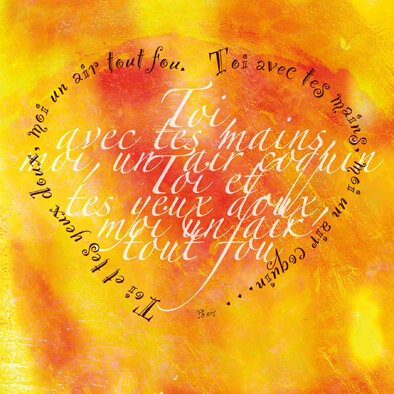 Toi avec tes mains, moi un air coquin....
Toi et tes yeux doux, moi un air tout fou.
Toi
avec tes mains
moi, un air coquin
Toi et
tes yeux doux,
moi un air
tout fou